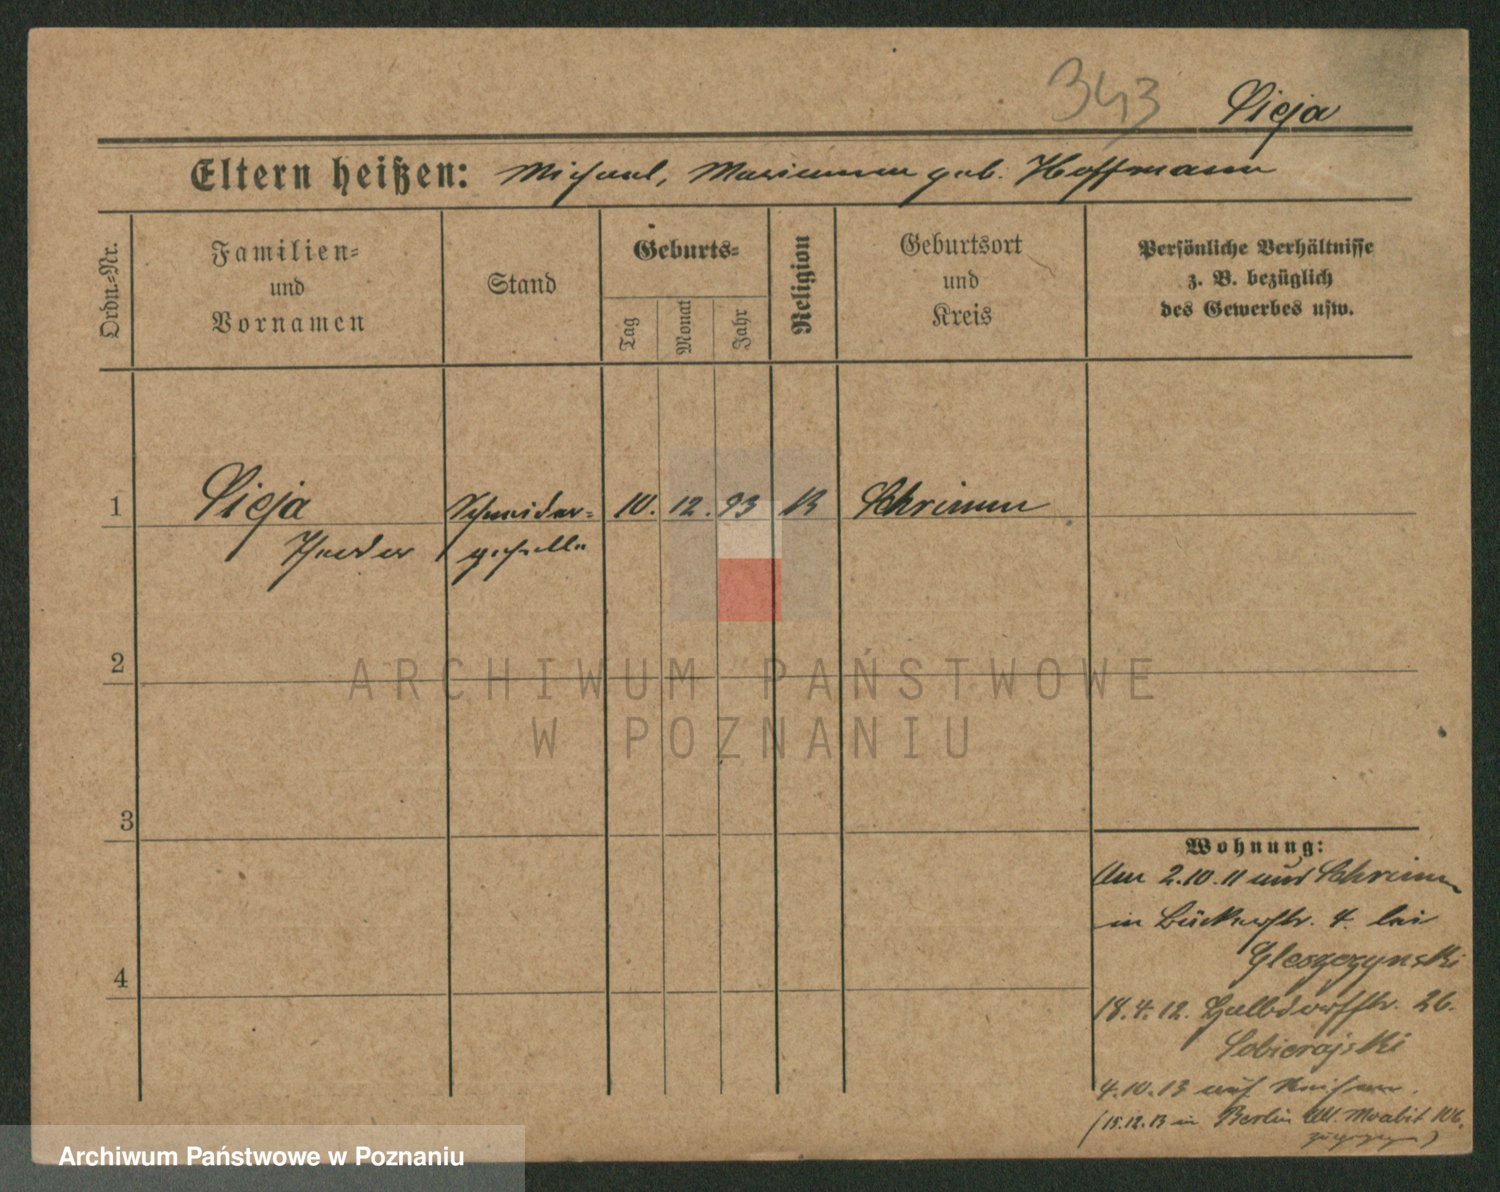 343 Sieja
Eltern heißen: Michael, Marianna geb. Hoffmann
Ordn.=Nr.
Familien=
und
Vornamen
Stand
Geburts=
Tag
Monat
Jahr
Religion
Geburtsort
und
Kreis
Persönliche Verhältnisse
z. B. bezüglich
des Gewerbes usw.
1 Sieja Schneider= 10. 12. 93 K Schrimm
Theodor geselle
2
ARCHIWUM PAŃSTWOWE
W POZNANIU
3
Wohnung:
Am 2.10.11 aus Schrimm
in Bäckerstr. 4. bei
Gleszczynski
4
18.4.12. Halbdorfstr. 26.
Sobierajski
4.10.13 auf Reisen.
(15.12.13 in Berlin Alt Moabit 106.
zugezogen)
Archiwum Państwowe w Poznaniu